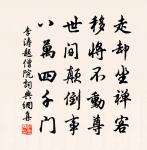 走却坐禅客
移将不动尊
世间颠倒事
八万四千门
李涛题僧院词典网善